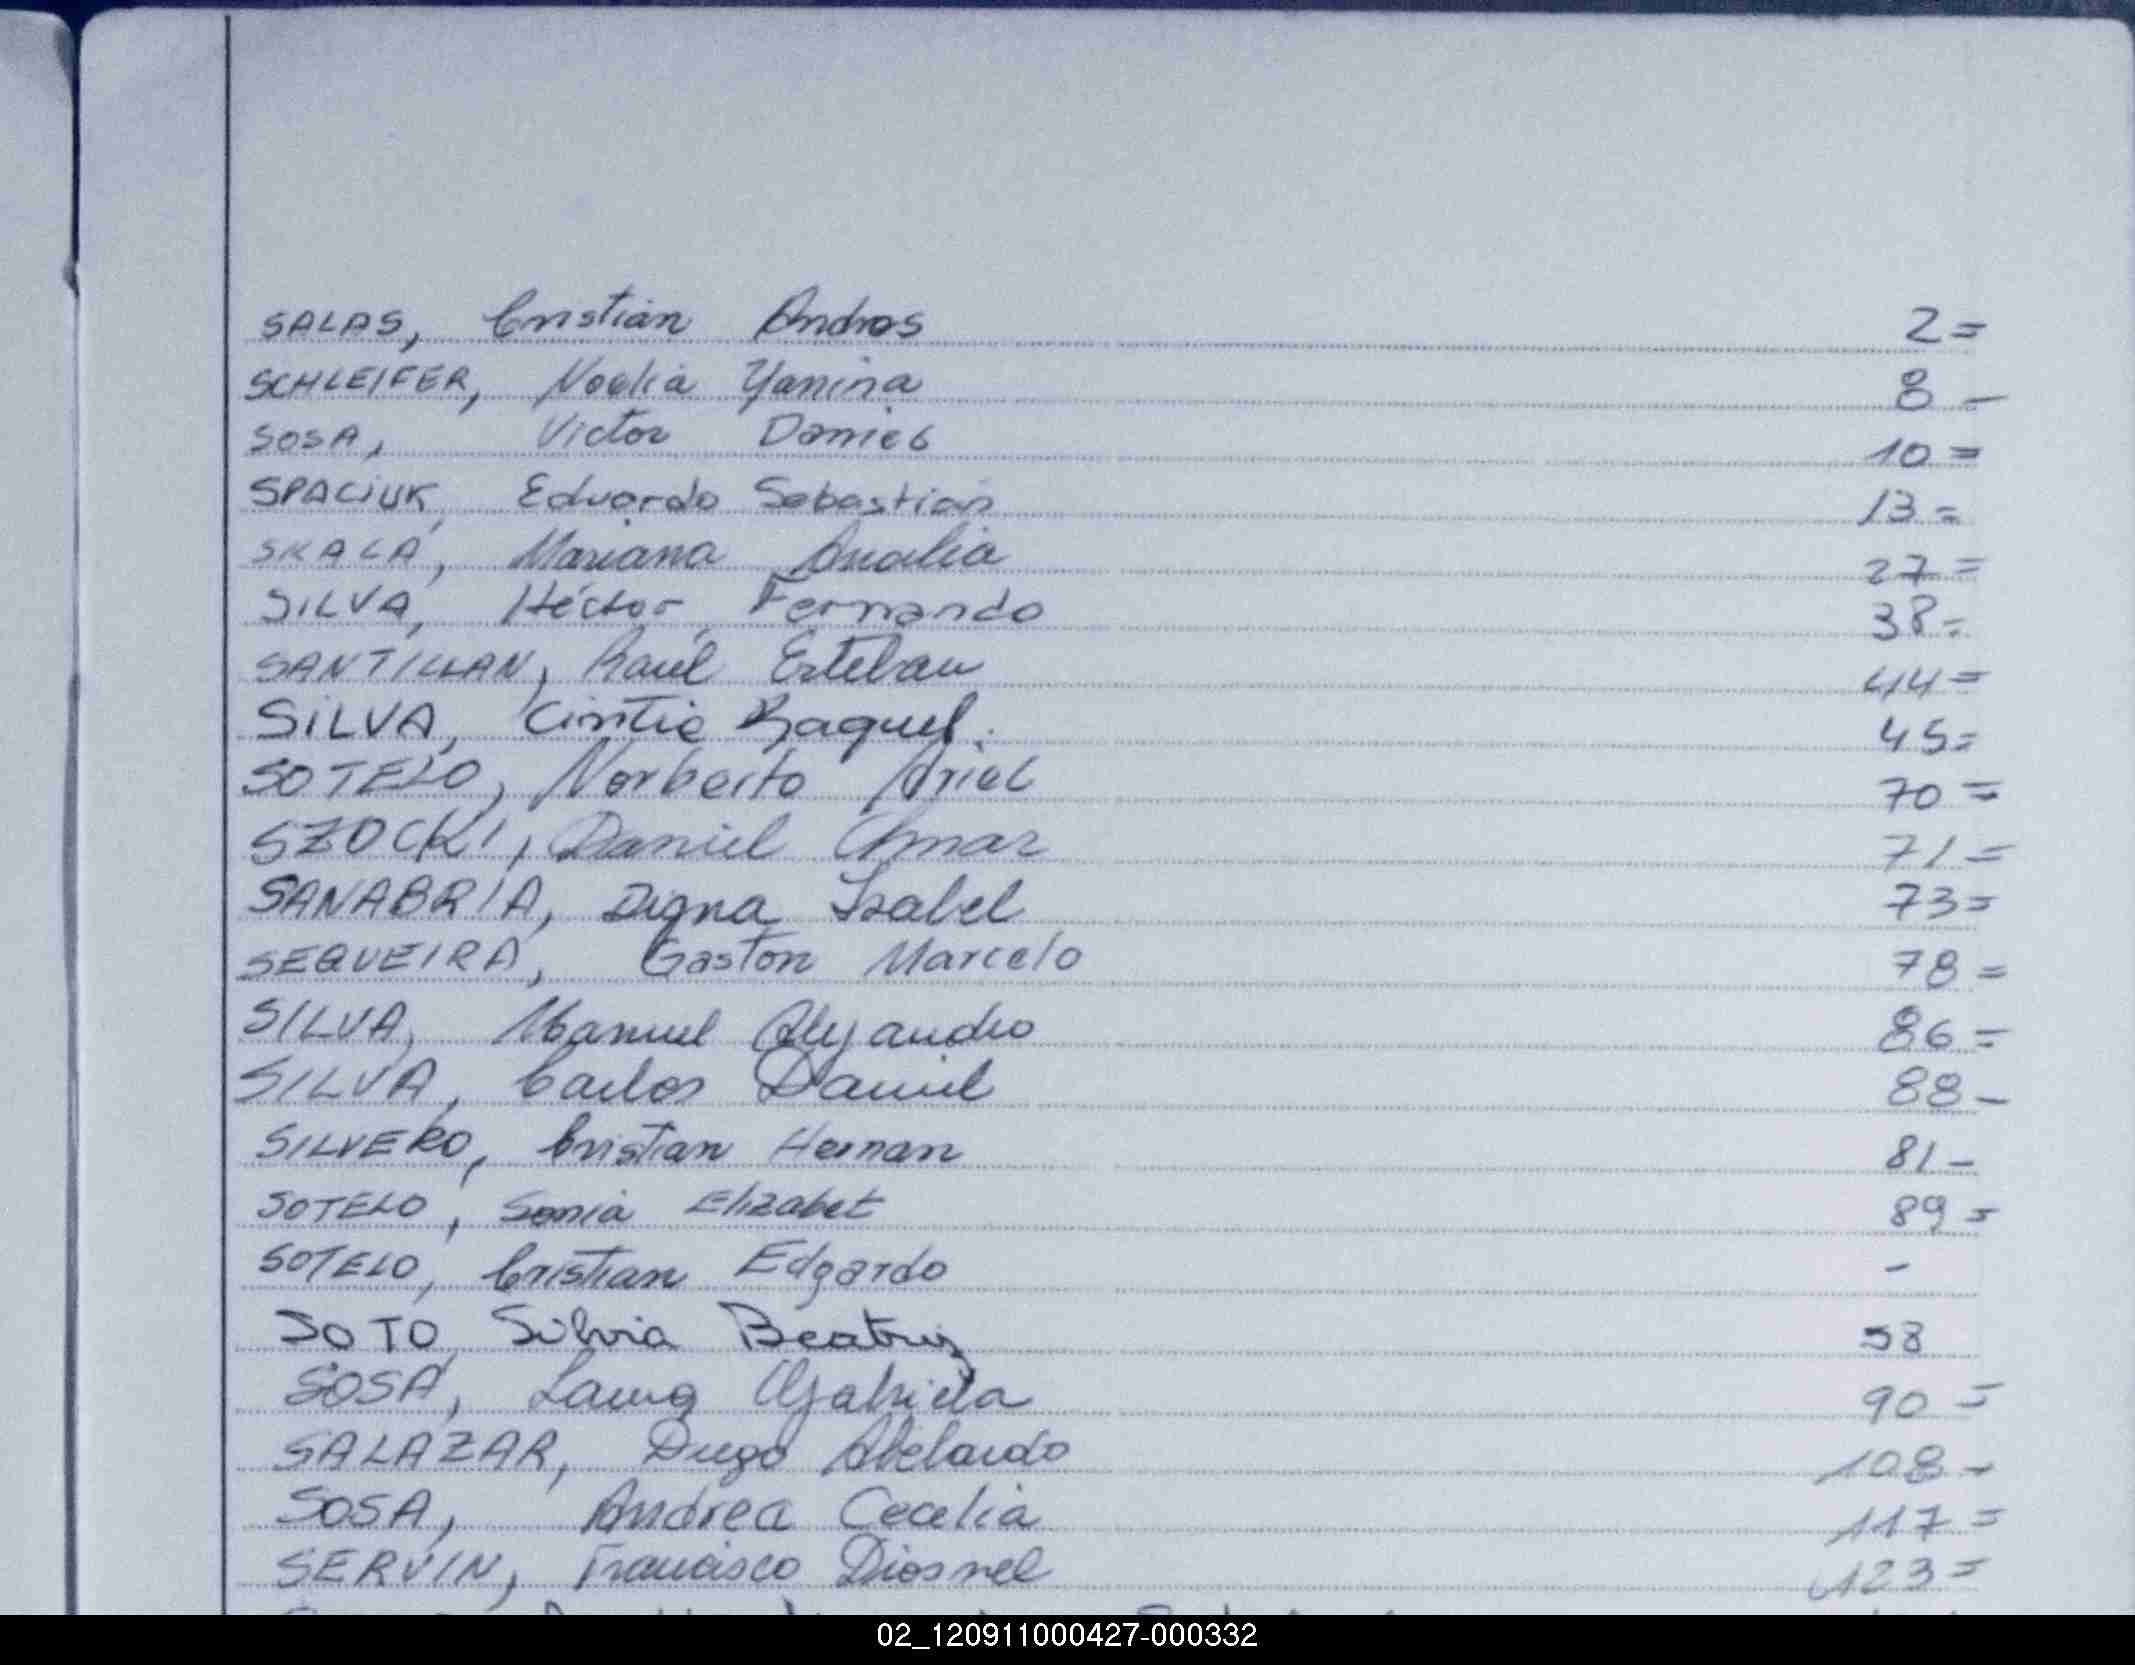 SALAS, Cristian Andros 2=
SCHLEIFER, Noelia Yanina 8 -
SOSA, Victor Daniel 10 =
SPACIUK, Eduardo Sebastian 13 =
SKALA, Mariana Analia 27 =
SILVA, Héctor Fernando 38 =
SANTILLAN, Raúl Esteban 44 =
SILVA, Cintia Raquel. 45 =
SOTELO, Norberto Ariel 70 =
SZOCKI, Daniel Omar 71 =
SANABRIA, Digna Isabel 73 =
SEQUEIRA, Gaston Marcelo 78 =
SILVA, Manuel Alejandro 86 =
SILVA, Carlos Daniel 88 -
SILVERO, Cristian Hernan 81 -
SOTELO, Sonia Elizabet 89 =
SOTELO, Cristian Edgardo -
SOTO, Silvia Beatriz 58
SOSA, Laura Gabriela 90 =
SALAZAR, Diego Abelardo 108 -
SOSA, Andrea Cecelia 117 =
SERVIN, Francisco Diosnel 123 =
02_120911000427-000332